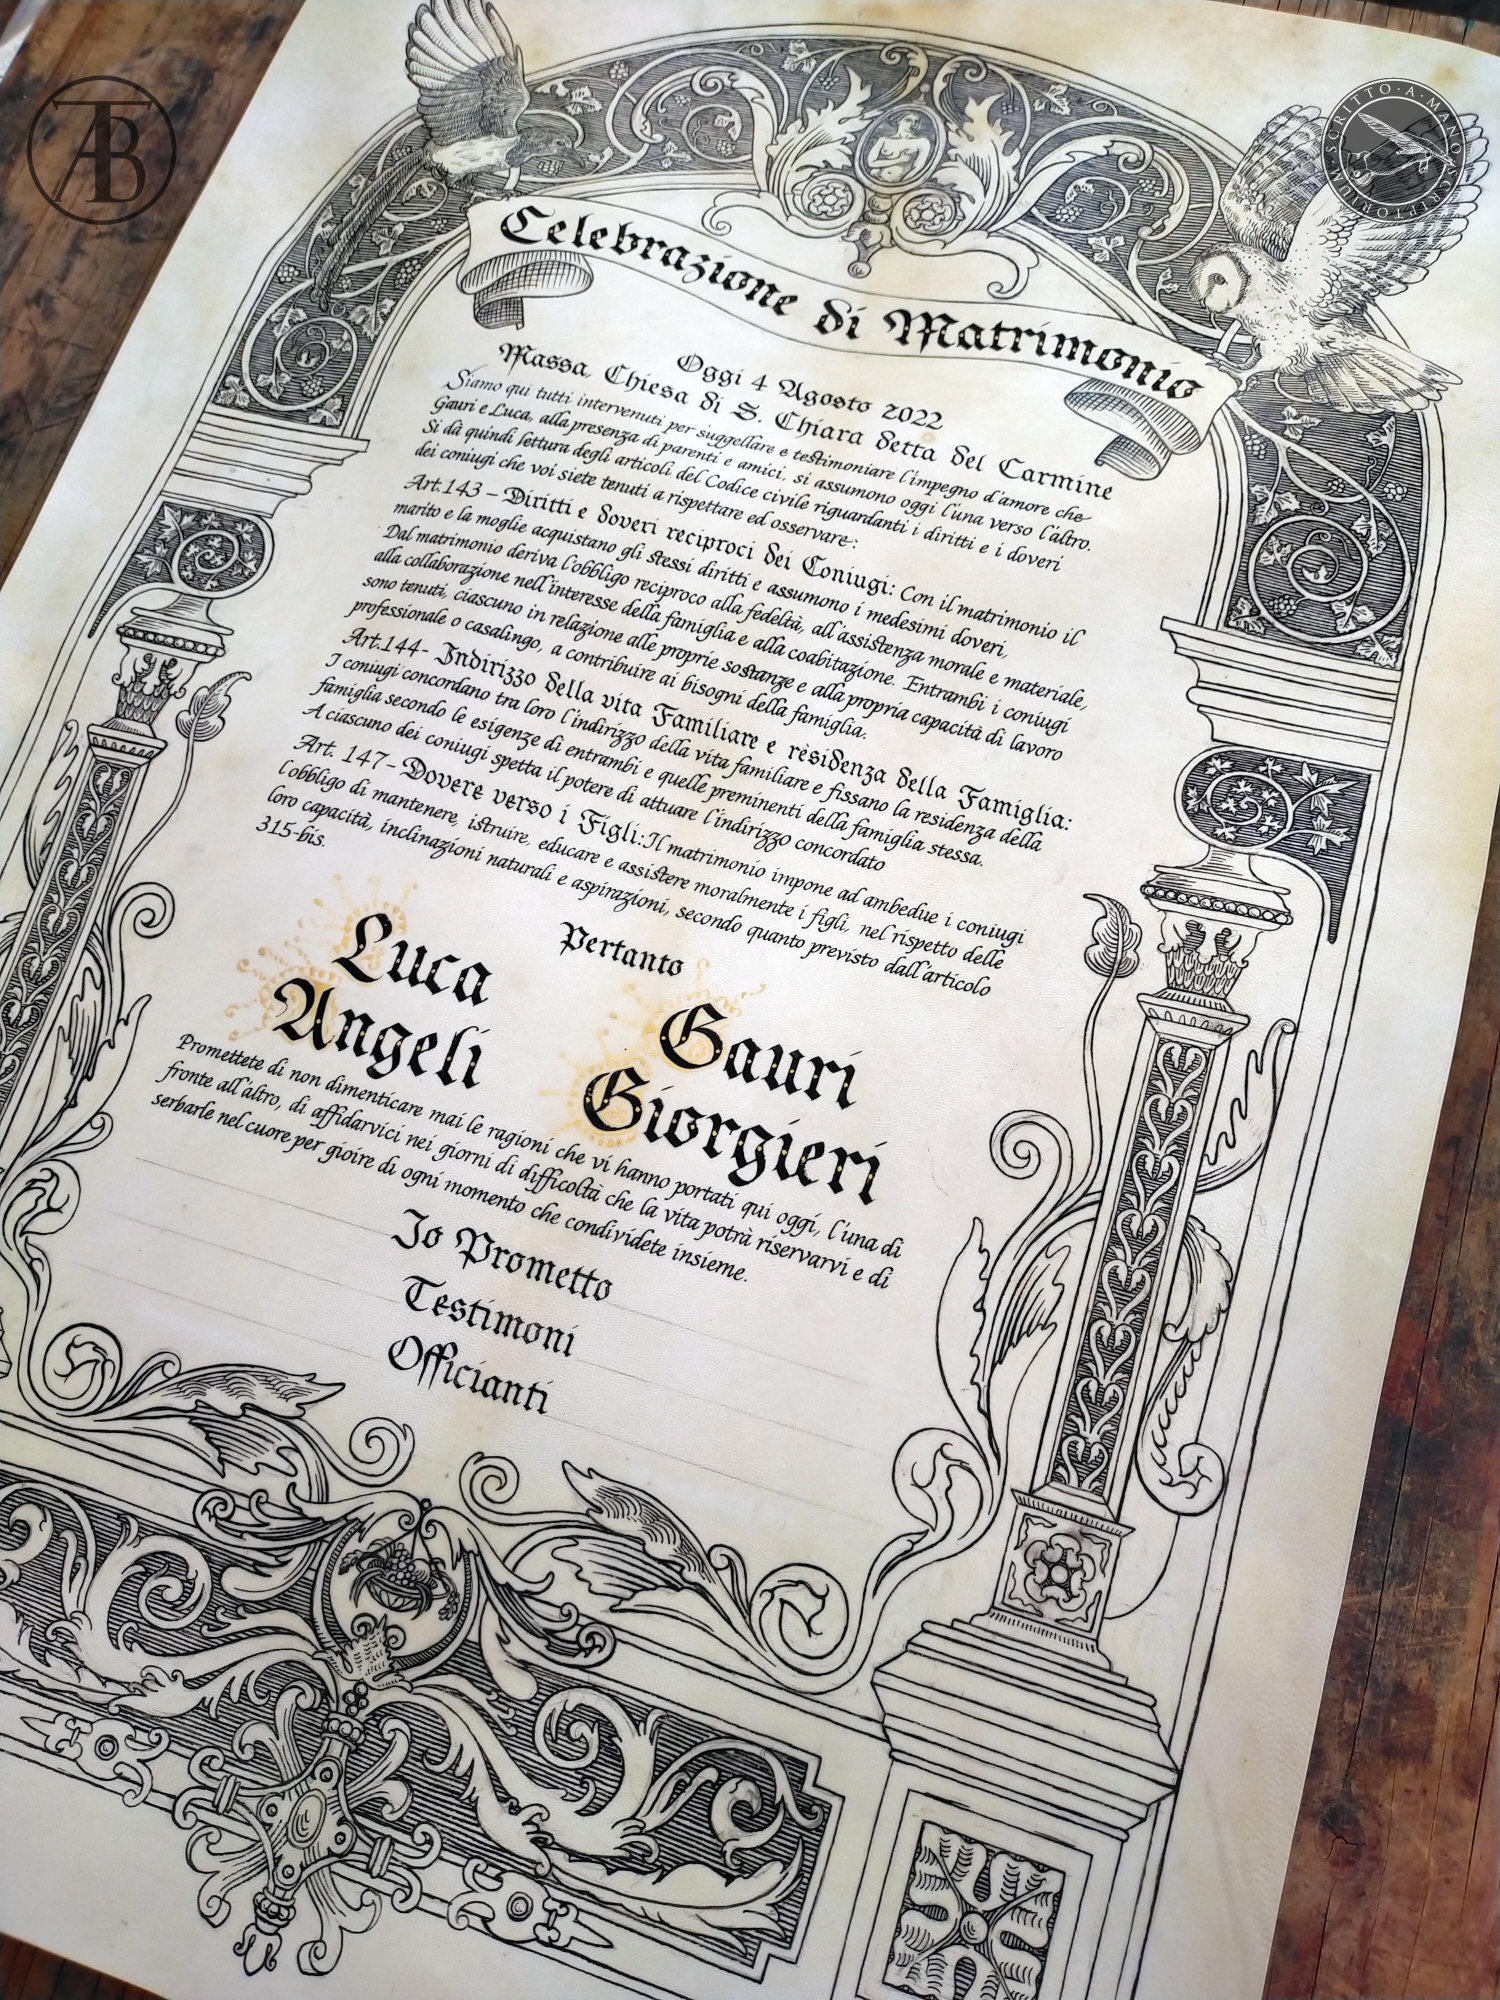 SCRITTO·A·MANO SCRIPTORIUM
Celebrazione di Matrimonio
Oggi 4 Agosto 2022
Massa, Chiesa di S. Chiara detta del Carmine
Siamo qui tutti intervenuti per suggellare e testimoniare l'impegno d'amore che
Gauri e Luca, alla presenza di parenti e amici, si assumono oggi l'una verso l'altro.
Si dà quindi lettura degli articoli del Codice civile riguardanti i diritti e i doveri
dei coniugi che voi siete tenuti a rispettare ed osservare:
Art.143 – Diritti e doveri reciproci dei Coniugi: Con il matrimonio il
marito e la moglie acquistano gli stessi diritti e assumono i medesimi doveri,
Dal matrimonio deriva l'obbligo reciproco alla fedeltà, all'assistenza morale e materiale,
alla collaborazione nell'interesse della famiglia e alla coabitazione. Entrambi i coniugi
sono tenuti, ciascuno in relazione alle proprie sostanze e alla propria capacità di lavoro
professionale o casalingo, a contribuire ai bisogni della famiglia.
Art.144- Indirizzo della vita Familiare e residenza della Famiglia:
I coniugi concordano tra loro l'indirizzo della vita familiare e fissano la residenza della
famiglia secondo le esigenze di entrambi e quelle preminenti della famiglia stessa.
A ciascuno dei coniugi spetta il potere di attuare l'indirizzo concordato
Art. 147- Dovere verso i Figli: Il matrimonio impone ad ambedue i coniugi
l'obbligo di mantenere, istruire, educare e assistere moralmente i figli, nel rispetto delle
loro capacità, inclinazioni naturali e aspirazioni, secondo quanto previsto dall'articolo
315-bis.
Pertanto
Luca
Angeli
Gauri
Giorgieri
Promettete di non dimenticare mai le ragioni che vi hanno portati qui oggi, l'una di
fronte all'altro, di affidarvici nei giorni di difficoltà che la vita potrà riservarvi e di
serbarle nel cuore per gioire di ogni momento che condividete insieme.
Io Prometto
Testimoni
Officianti